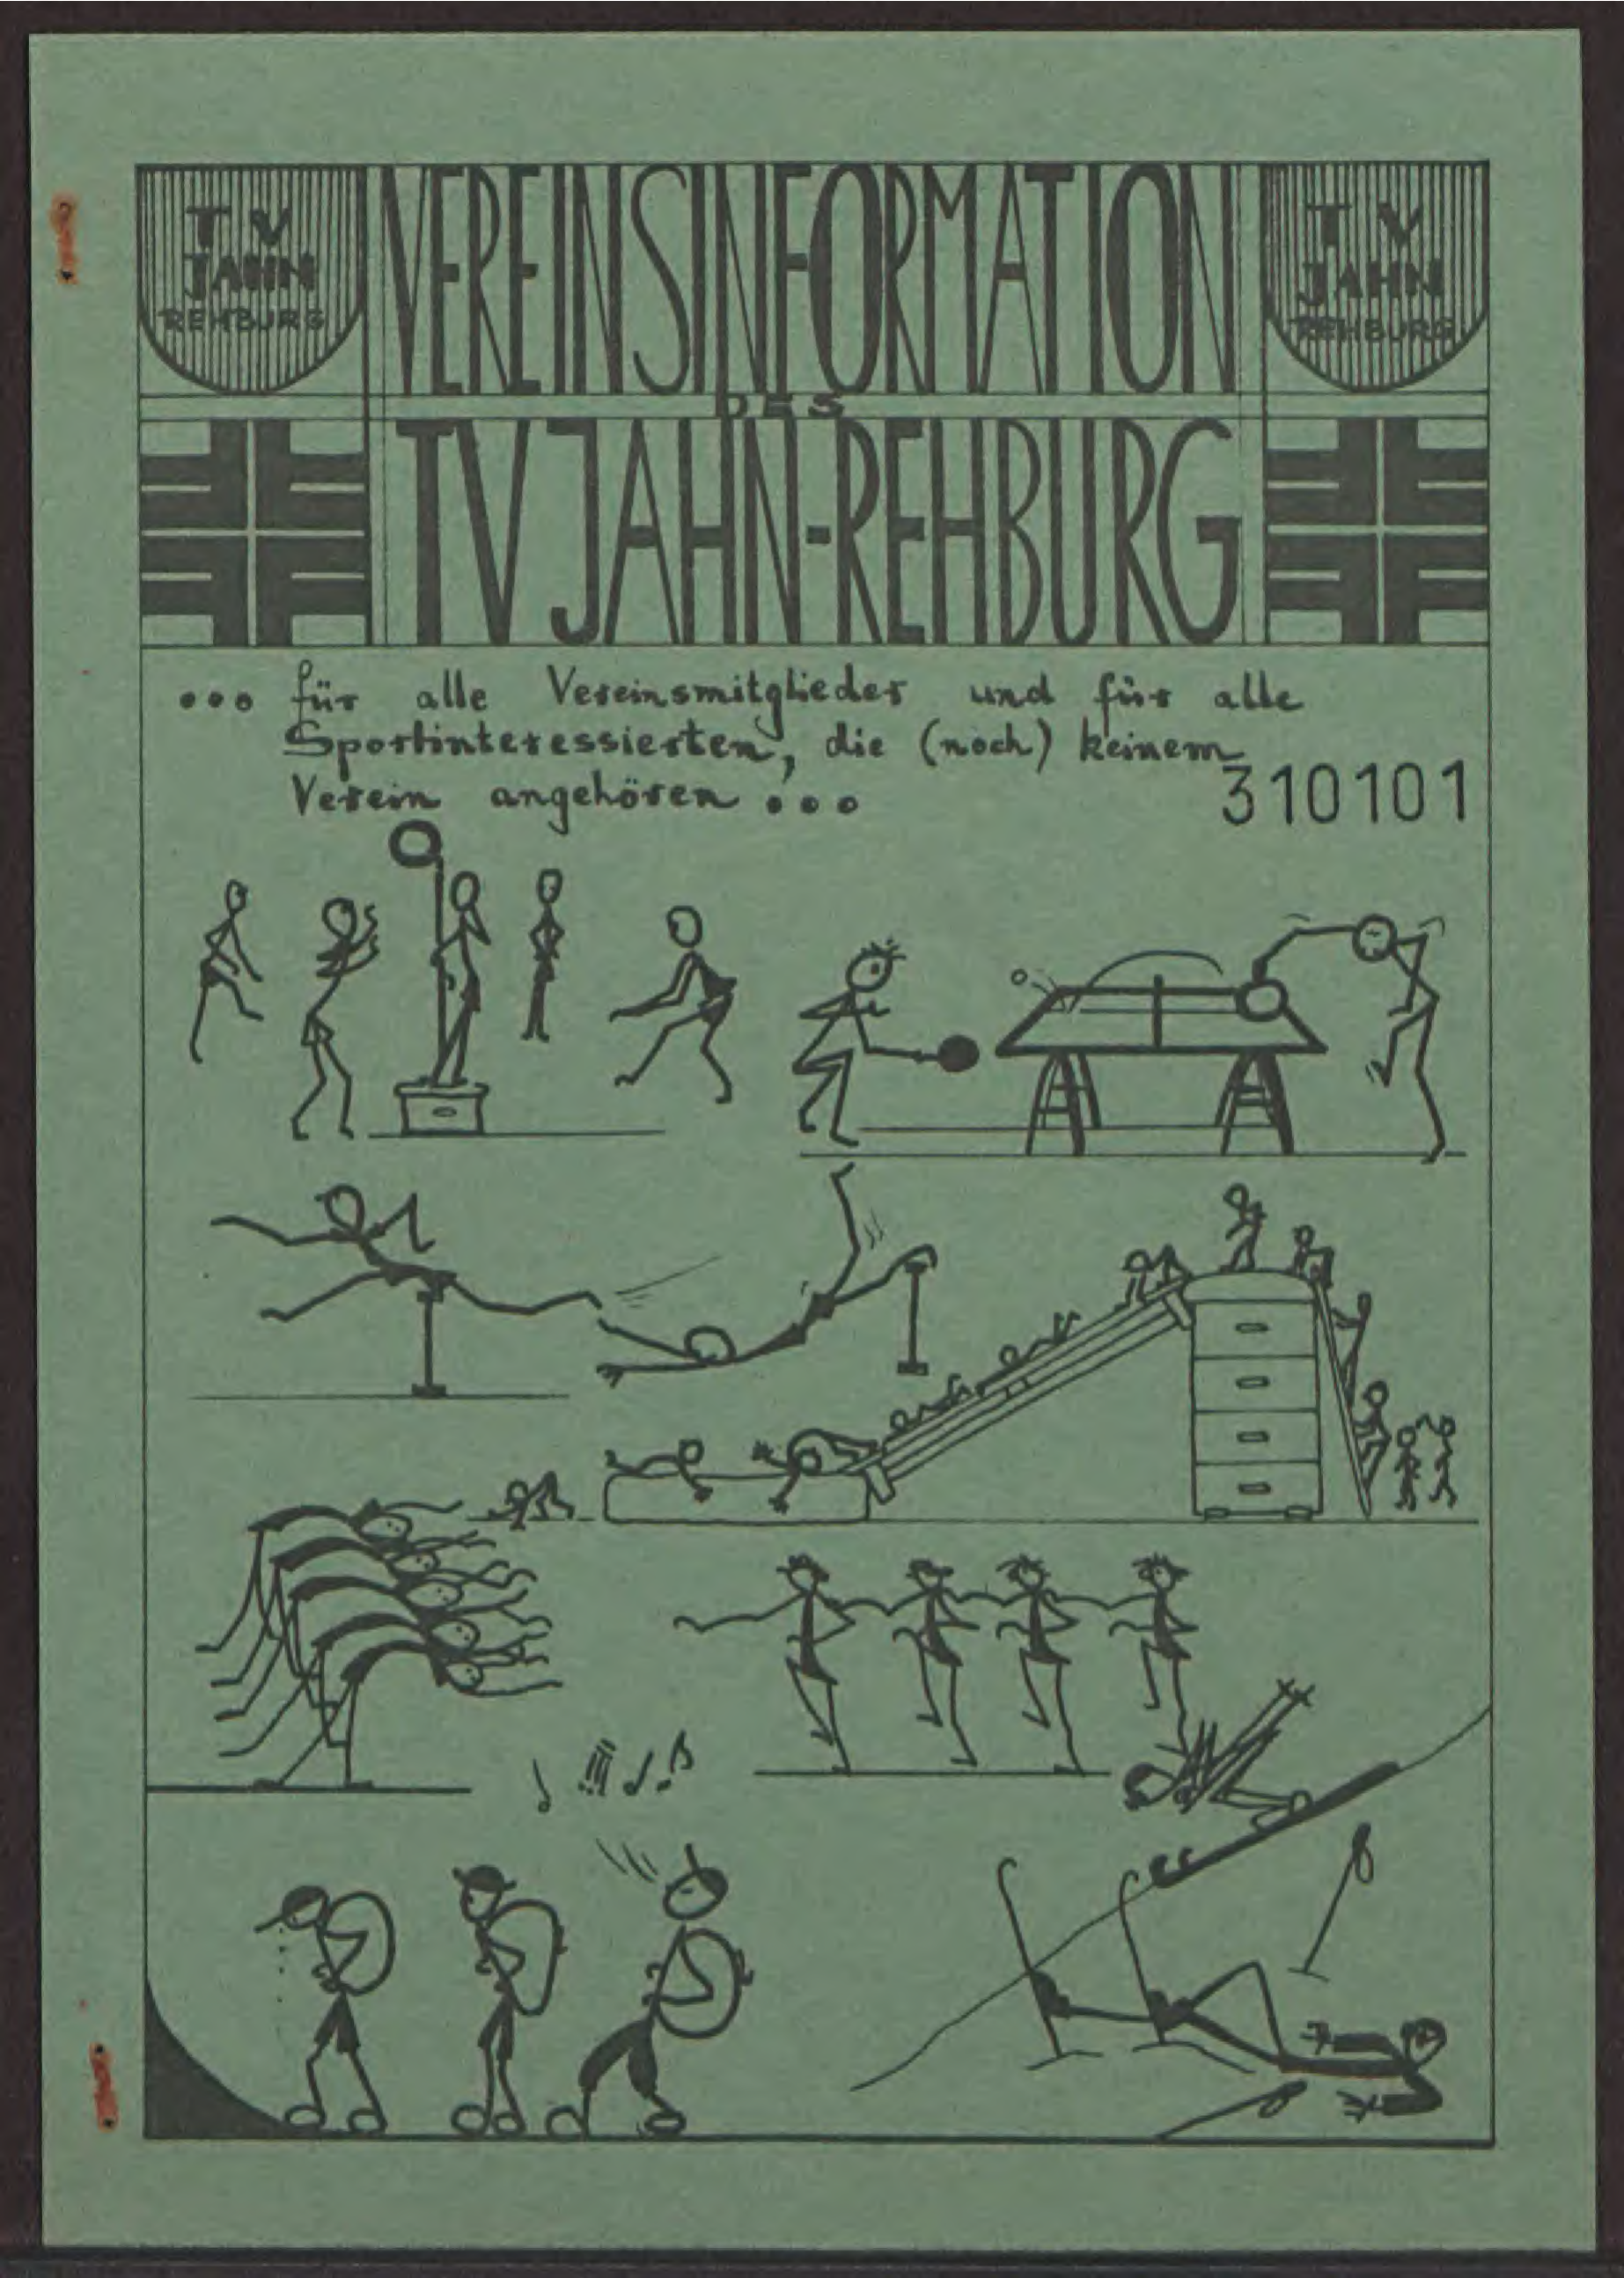 TV
JAHN
REHBURG
VEREINSINFORMATION
TV
JAHN
REHBURG
DES
TV JAHN-REHBURG
... für alle Vereinsmitglieder und für alle
Sportinteressierten, die (noch) keinem
Verein angehören ...
310101